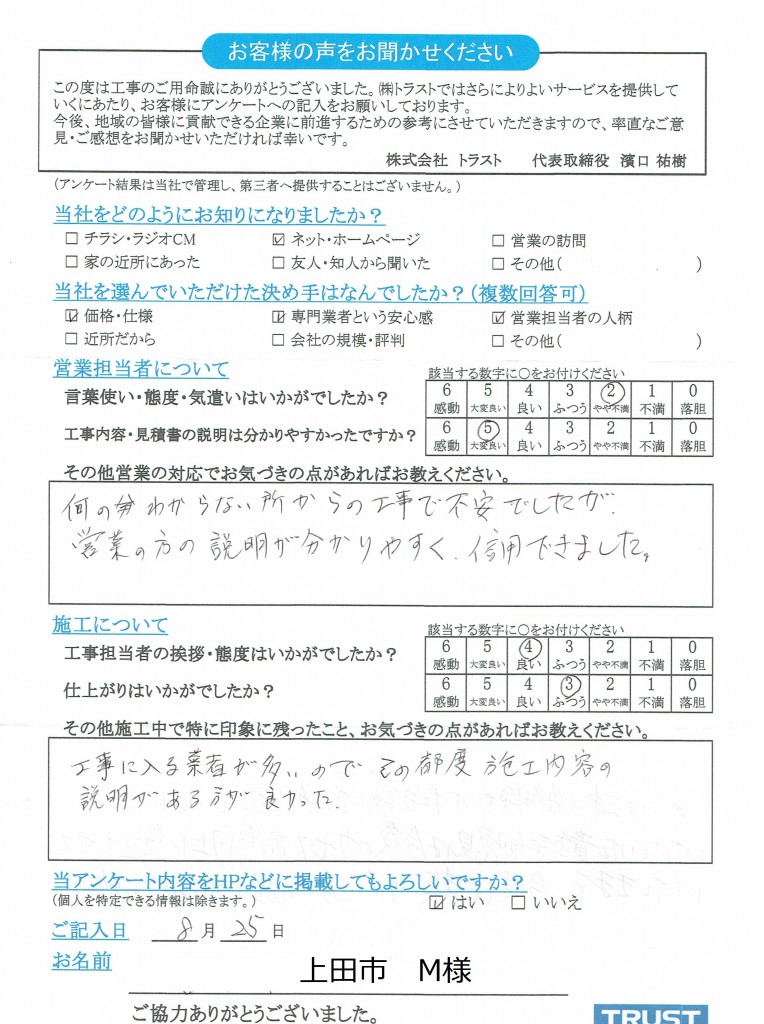 お客様の声をお聞かせください
この度は工事のご用命誠にありがとうございました。㈱トラストではさらによりよいサービスを提供して
いくにあたり、お客様にアンケートへの記入をお願いしております。
今後、地域の皆様に貢献できる企業に前進するための参考にさせていただきますので、率直なご意
見・ご感想をお聞かせいただければ幸いです。
株式会社 トラスト　　代表取締役 濱口 祐樹
(アンケート結果は当社で管理し、第三者へ提供することはございません。)
当社をどのようにお知りになりましたか?
□ チラシ・ラジオCM ☑ ネット・ホームページ □ 営業の訪問
□ 家の近所にあった □ 友人・知人から聞いた □ その他( )
当社を選んでいただけた決め手はなんでしたか?(複数回答可)
☑ 価格・仕様 ☑ 専門業者という安心感 ☑ 営業担当者の人柄
□ 近所だから □ 会社の規模・評判 □ その他( )
営業担当者について 該当する数字に○をお付けください
言葉使い・態度・気遣いはいかがでしたか? 6 5 4 3 2 1 0
感動 大変良い 良い ふつう やや不満 不満 落胆
工事内容・見積書の説明は分かりやすかったですか? 6 5 4 3 2 1 0
感動 大変良い 良い ふつう やや不満 不満 落胆
その他営業の対応でお気づきの点があればお教えください。
何の分わからない所からの工事で不安でしたが、
営業の方の説明が分かりやすく、信用できました。
施工について 該当する数字に○をお付けください
工事担当者の挨拶・態度はいかがでしたか? 6 5 4 3 2 1 0
感動 大変良い 良い ふつう やや不満 不満 落胆
仕上がりはいかがでしたか? 6 5 4 3 2 1 0
感動 大変良い 良い ふつう やや不満 不満 落胆
その他施工中で特に印象に残ったこと、お気づきの点があればお教えください。
工事に入る業者が多いのでその都度施工内容の
説明がある方が良かった。
当アンケート内容をHPなどに掲載してもよろしいですか?
(個人を特定できる情報は除きます。) ☑ はい □ いいえ
ご記入日 8 月 25 日
お名前 上田市　M様
ご協力ありがとうございました。
TRUST